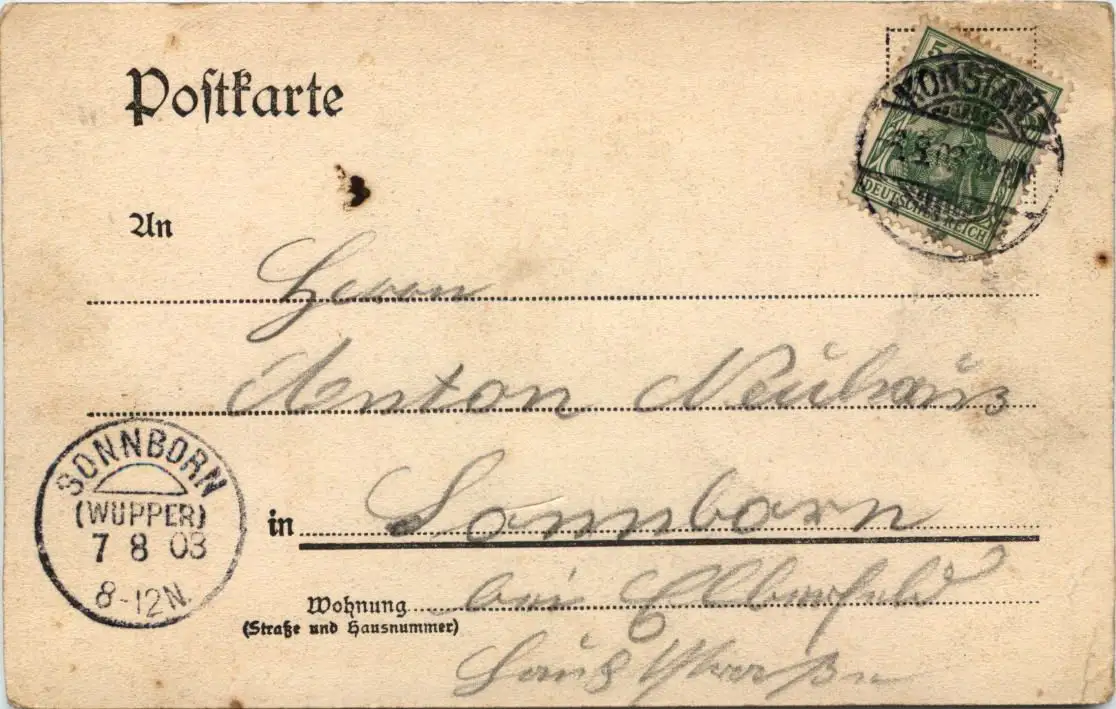 Postkarte
5
KONSTANZ
DEUTSCHES REICH
An
Herrn
Anton Neuhaus
SONNBORN
(WUPPER)
7 8 03
8-12N.
in Sonnborn
Wohnung bei Elberfeld
(Straße und Hausnummer)